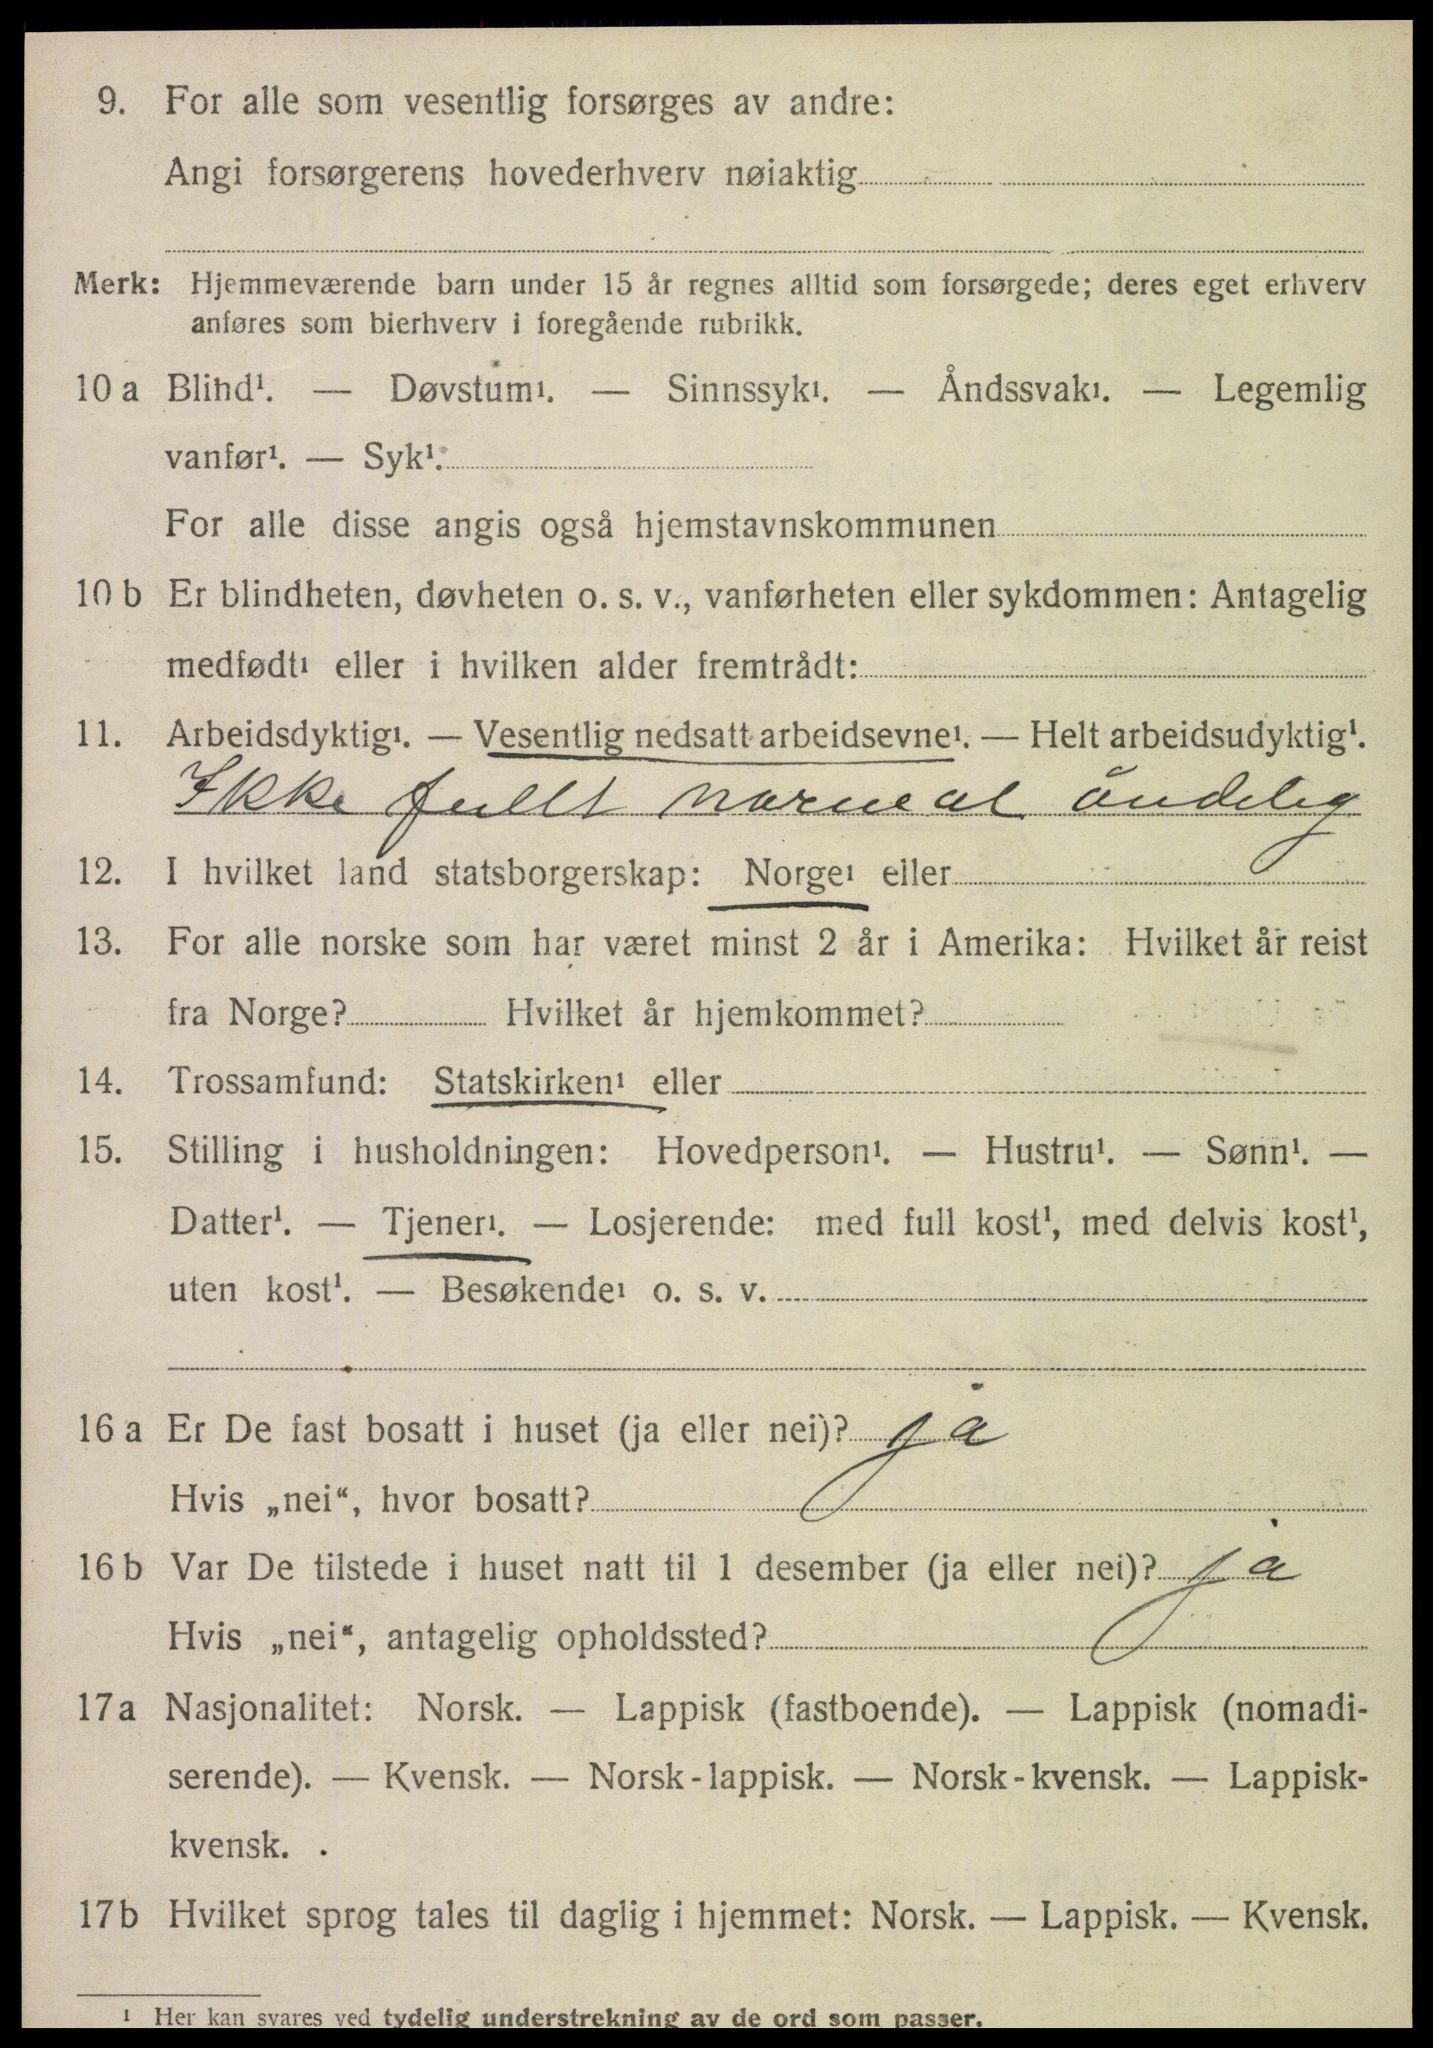 9. For alle som vesentlig forsørges av andre:
Angi forsørgerens hovederhverv nøiaktig
Merk: Hjemmeværende barn under 15 år regnes alltid som forsørgede; deres eget erhverv
anføres som bierhverv i foregående rubrikk.
10 a Blind¹. — Døvstum¹. — Sinnssyk¹. — Åndssvak¹. — Legemlig
vanfør¹. — Syk¹.
For alle disse angis også hjemstavnskommunen
10 b Er blindheten, døvheten o. s. v., vanførheten eller sykdommen: Antagelig
medfødt¹ eller i hvilken alder fremtrådt:
11. Arbeidsdyktig¹. — Vesentlig nedsatt arbeidsevne¹. — Helt arbeidsudyktig¹.
Ikke fullt normal åndelig
12. I hvilket land statsborgerskap: Norge¹ eller
13. For alle norske som har været minst 2 år i Amerika: Hvilket år reist
fra Norge? Hvilket år hjemkommet?
14. Trossamfund: Statskirken¹ eller
15. Stilling i husholdningen: Hovedperson¹. — Hustru¹. — Sønn¹. —
Datter¹. — Tjener¹. — Losjerende: med full kost¹, med delvis kost¹,
uten kost¹. — Besøkende¹ o. s. v.
16 a Er De fast bosatt i huset (ja eller nei)? ja
Hvis „nei“, hvor bosatt?
16 b Var De tilstede i huset natt til 1 desember (ja eller nei)? ja
Hvis „nei“, antagelig opholdssted?
17 a Nasjonalitet: Norsk. — Lappisk (fastboende). — Lappisk (nomadi-
serende). — Kvensk. — Norsk-lappisk. — Norsk-kvensk. — Lappisk-
kvensk.
17 b Hvilket sprog tales til daglig i hjemmet: Norsk. — Lappisk. — Kvensk.
¹ Her kan svares ved tydelig understrekning av de ord som passer.